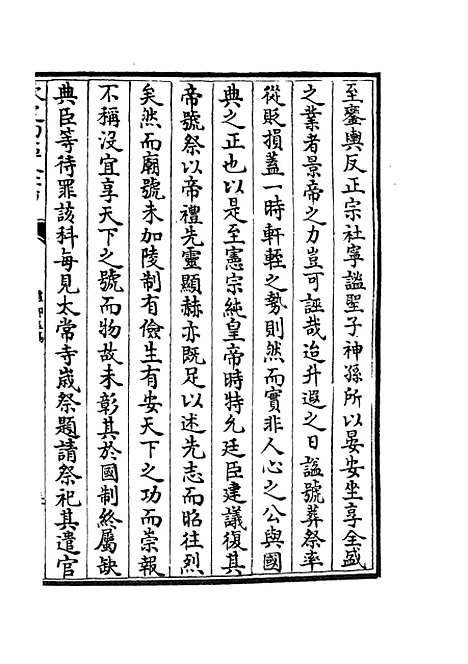 至鑾輿反正宗社寧謐聖子神孫所以晏安坐享全盛
之業者景帝之力豈可誣哉迨升遐之日諡號葬祭率
從貶損蓋一時軒輊之勢則然而實非人心之公與國
典之正也以是至憲宗純皇帝時特允廷臣建議復其
帝號祭以帝禮先靈顯赫亦既足以述先志而昭往烈
矣然而廟號未加陵制有儉生有安天下之功而崇報
不稱沒宜享天下之號而物故未彰其於國制終屬缺
典臣等待罪該科每見太常寺歲祭題請祭祀其遣官